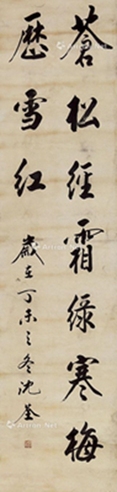 蒼松經霜綠寒梅
歷雪紅
歲在丁未之冬沈荃